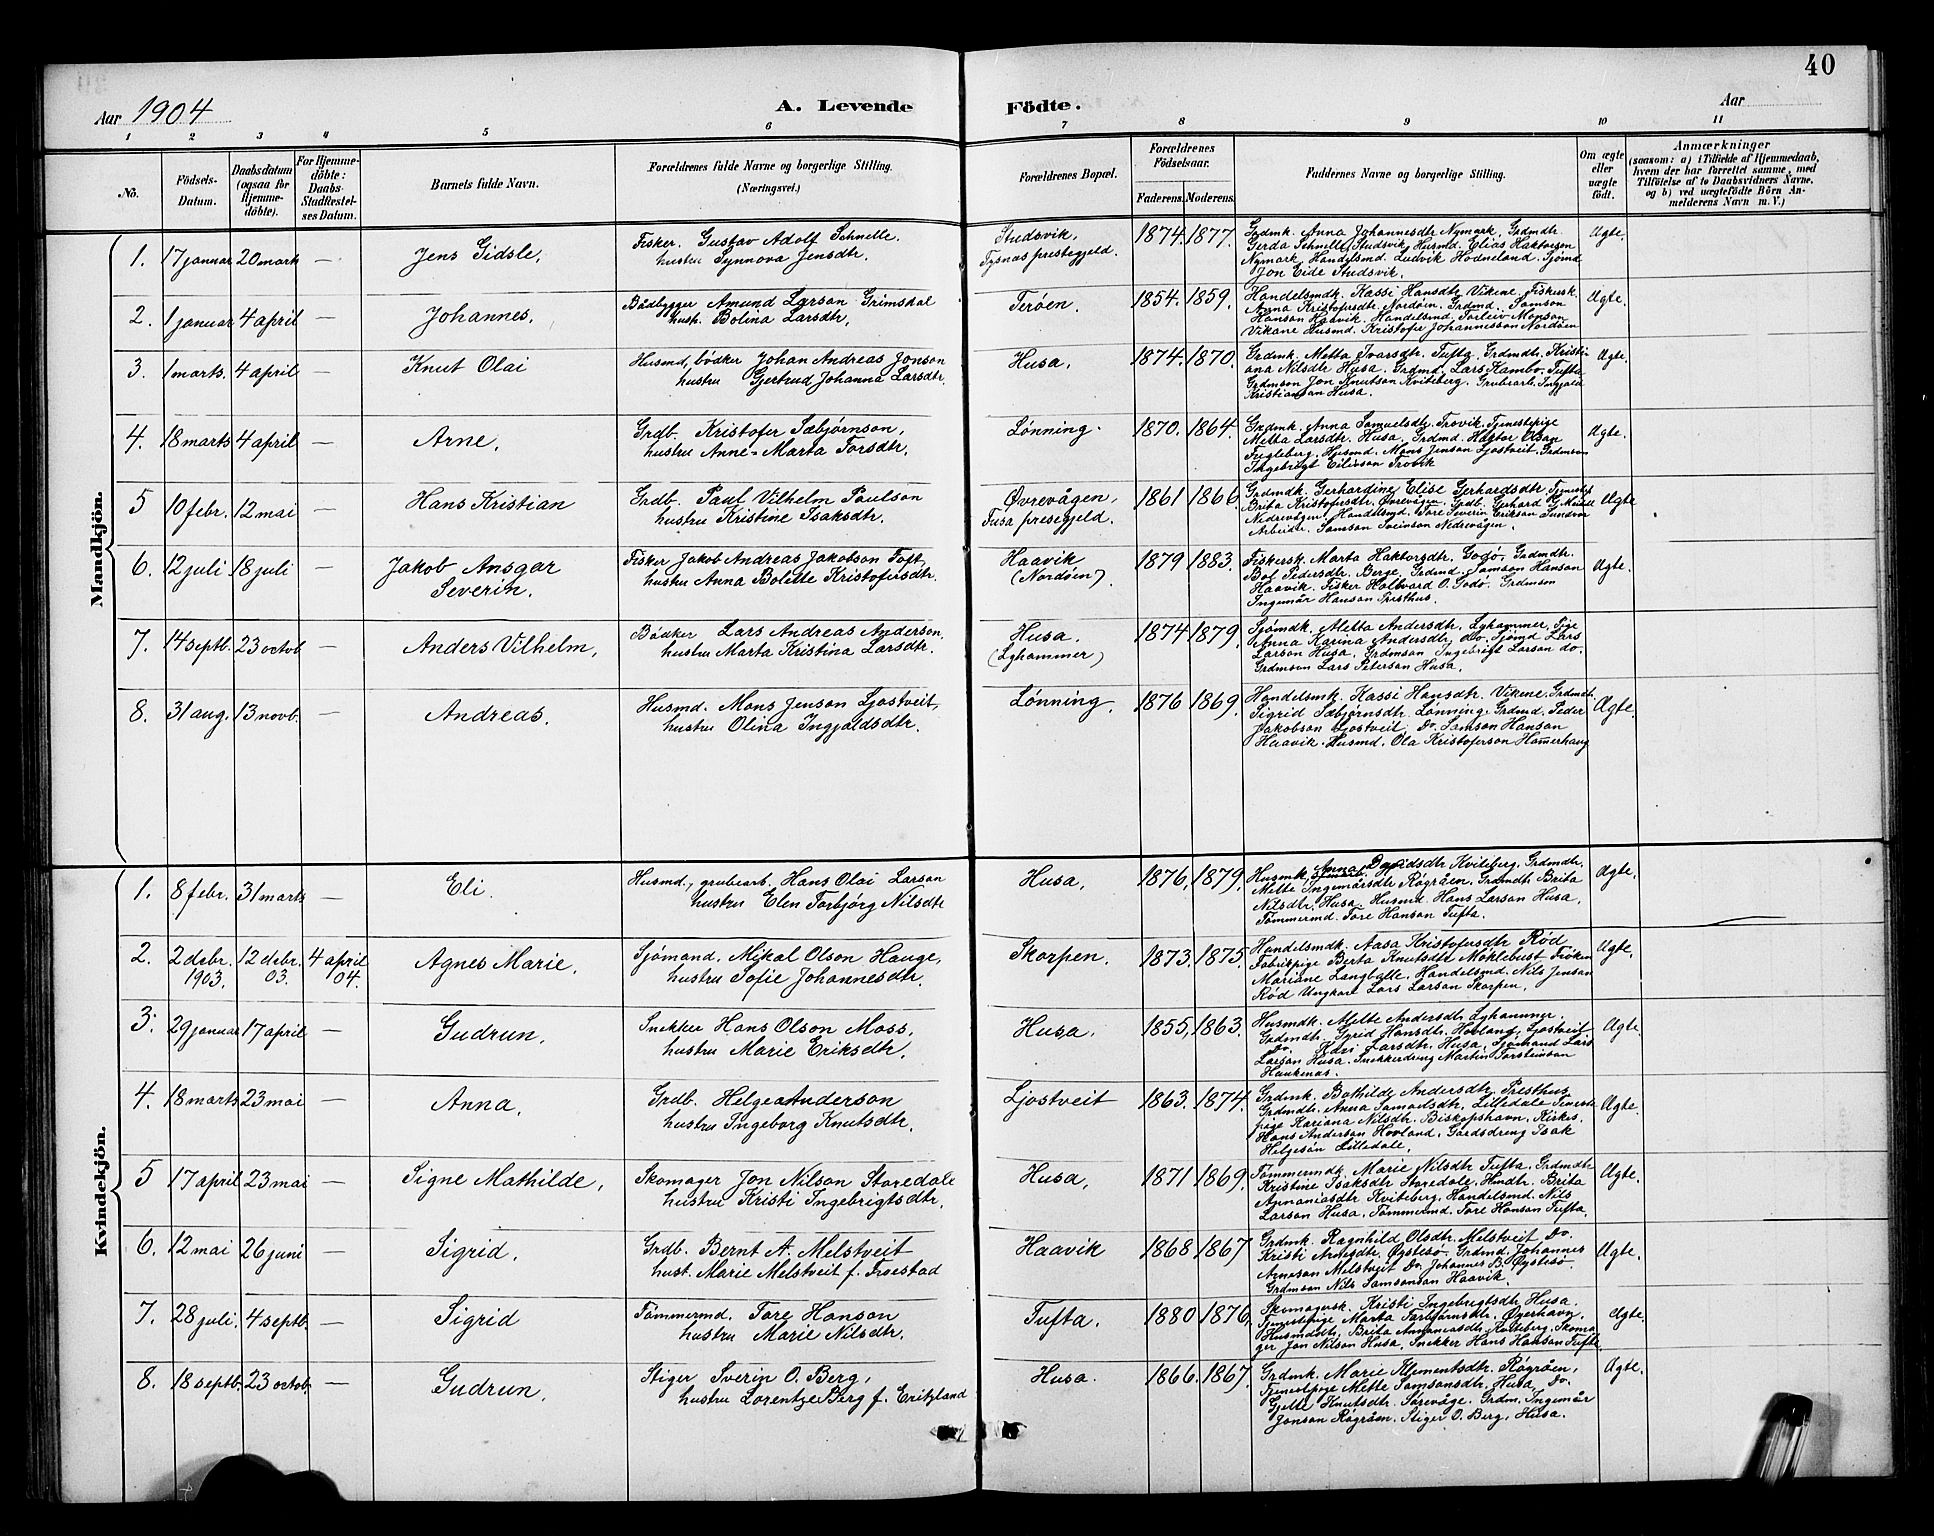 40
Aar 1904
A. Levende
Födte.
Aar
1 2 3 4 5 6 7 8 9 10 11
No.
Födsels-
Datum.
Daabsdatum
(ogsaa for
Hjemme-
döbte).
For Hjemme-
döbte:
Daabs-
Stadfæstel-
ses Datum.
Barnets fulde Navn.
Forældrenes fulde Navne og borgerlige Stilling.
(Næringsvei.)
Forældrenes Bopæl.
Forældrenes
Födselsaar.
Faderens. Moderens.
Faddernes Navne og borgerlige Stilling.
Om ægte
eller
uægte
født.
Anmærkninger
(saasom: a) i Tilfælde af Hjemmedaab,
hvem der har forrettet samme, med
Tilföielse af to Daabsvidners Navne,
og b) ved uægtefödte Börn An-
melderens Navn m. V.)
Mandkjön.
1. 17 januar 20 mark — Jens Gidsle,
Fisker. Gustav Adolf Schnelle.
hustru Synnova Jensdtr.
Studsvik,
Tysnæs prestegjeld.
1874. 1877.
Grdmk. Anna Johannesdtr Nymark, Grdmdtr.
Gerda Schnelle, Studsvik, Husmd. Elias Haktorson
Nymark, Handelsmd. Ludvik Hodneland. Sjömd
Jon Eide Studsvik.
Ægte.
2. 1 januar 4 april — Johannes,
Bådbygger Amund Larson Grimsdal
hust. Bolina Larsdtr,
Terøen.
1854. 1859.
Handelsmdk. Kassi Hansdtr, Vikene, Fiskersk.
Anna Kristofersdtr Nordöen. Grdmd. Samson
Hanson Haavik. Handelsmd. Torleiv Monson
Vikane Husmd. Kristofer Johannesson Nordöen
Ægte.
3. 1 marts. 4 april — Knut Olai
Husmd, bødker Johan Andreas Jonson
hustru Gjertrud Johanna Larsdtr.
Husa.
1874. 1870.
Grdmk. Metta Ivarsdtr. Tufta, Grdmdtr. Kristi-
ana Nilsdtr Husa. Grdmd. Lars Kambo. Tufta
Grdmson Jon Knutson Kviteberg, Grubearb. Ingjald
Kristianson Husa.
Ægte.
4. 18 marts 4 april — Arne,
Grdb. Kristofer Sæbjørnson,
hustru Anne-Marta Torsdtr,
Lønning.
1870. 1864.
Grdmk. Anna Samuelsdtr. Trovik, Tjenestepige
Metta Larsdtr. Husa. Grdmd. Haktor Olson
Fugleberg. Husmd. Mons Jenson Ljostveit, Grdmson
Ingebrigt Eilifson Trovik
Ægte.
5 10 febr. 12 mai — Hans Kristian
Grdb. Paul Vilhelm Paulson
hustru Kristine Isaksdtr.
Øvrevågen,
Fusa presegjeld.
1861 1866
Grdmdk. Gerhardine Elise Gerhardsdtr,
Brita Kristofersdtr. Øvrevågen. Grdb. Gerhard G.
Nedrevågen, Handelsmd. Tore Severin Erikson Sundvor
Arbeidr. Samson Sveinson Nedrevågen.
Ægte
6. 12 juli 18 juli — Jakob Ansgar
Severin.
Fisker Jakob Andreas Jakobson Toft,
hustru Anna Bolette Kristofersdtr.
Haavik
(Nordöen).
1879 1883.
Fiskersk. Marta Haktorsdtr. Godø, Grdmdtr.
Bol Pedersdtr. Berge, Grdmd. Samson Hanson
Haavik. Fisker Hallvard O. Godö. Grdmson
Ingemår Hanson Presthus.
Ægte.
7. 14 septb. 23 octob — Anders Vilhelm,
Bödker Lars Andreas Anderson,
hustru Marta Kristina Larsdtr.
Husa.
(Lghammer)
1874 1879.
Sjömdk. Metta Andersdtr. Lghammer, Pige
Anna Karina Andersdtr, do. Sjömd Lars
Larson Husa. Grdmson Ingebrigt Larson do.
Grdmson Lars Peterson Husa,
Ægte.
8. 31 aug. 13 novb. — Andreas.
Husmd. Mons Jenson Ljostveit,
hustru Olina Ingjaldsdtr.
Lønning.
1876 1869.
Handelsmk. Kassi Hansdtr. Vikene. Grdmdtr.
Sigrid Sæbjørnsdtr. Lønning. Grdmd. Peder
Jakobson Ljostveit, Do. Samson Hanson
Haavik. Husmd. Ola Kristoferson Hamerhaug
Ægte.
Kvindekjön.
1. 8 febr. 31 marts — Eli.
Husmd., grubearb. Hans Olai Larson
hustru Elen Torbjörg Nilsdtr
Husa,
1876, 1879.
Husmk. Anna Davidsdtr Kviteberg. Grdmdtr.
Mette Ingemårsdtr Rögråen, Grdmdtr Brita
Nilsdtr. Husa. Husmd. Hans Larson Husa,
Tömmermd. Tore Hanson Tufta.
Ægte.
2. 2 debr. 1903. 12 debr. 03. 4 april 04. Agnes Marie,
Sjömand. Mikal Olson Hauge,
hustru Sofie Johannesdtr.
Skorpen.
1873. 1875.
Handelsmdk. Aasa Kristofersdtr Rød
Fabrikpige Berta Knutsdtr Möklebust
Mariane Langballe. Handelsmd. Nils Jenson
Rød Ungkarl Lars Larson Skorpen,
Ægte.
3. 29 januar 17 april — Gudrun,
Snekker Hans Olson Moss,
hustru Marie Eriksdtr.
Husa.
1855, 1863.
Husmdk. Mette Andersdtr Lghammer.
Grdmdtr. Gyrid Hansdtr. Hovland, Ljostveit
Do. Kari Larsdtr. Husa, Sjömand Lars
Larson Husa. Snekkerdreng Martin Torsteinson
Haukenas.
Ægte
4. 18 marts 23 mai — Anna,
Grdb. Helge Anderson
hustru Ingeborg Knutsdtr.
Ljostveit
1863. 1874.
Grdmk. Bothilde Andersdtr. Presthus
Grdmdtr. Anna Tomasdtr. Lilledale Tjeneste
pige Kariana Nilsdtr. Biskopshavn, Kirkes.
Hans Anderson Hovland. Gårdsdreng Isak
Helgesön Lilledale,
Ægte.
5 17 april 23 mai — Signe Mathilde,
Skomager Jon Nilson Storedale
hustru Kristi Ingebrigtsdtr,
Husa,
1871 1869.
Tömmermdk. Marie Nilsdtr Tufta. Grdmdtr
Kristine Isaksdtr Storedale. Hmdtr. Brita
Ananiasdtr Kviteberg. Handelsmd. Nils
Larson Husa, Tömmermd. Tore Hanson Tufta,
Ægte.
6. 12 mai 26 juni — Sigrid,
Grdb. Bernt A. Melstveit
hust. Marie Melstveit f. Froestad
Haavik
1868 1867
Grdmk. Ragnhild Olsdtr. Melstveit Do.
Kristi Arnesdtr. Øystesö. Grdmd. Johannes
Arneson Melstveit Do. Johannes B. Øystesö.
Grdmson Nils Samsonson Haavik.
Ægte.
7. 28 juli. 4 septb. — Sigrid
Tömmermd. Tore Hanson
hustru Marie Nilsdtr.
Tufta.
1880 1876.
Skomagersk. Kristi Ingebrigtsdtr Husa.
Tjenestpige Marta Torbjørnsdtr. Øverhavn,
Husmdsdtr. Brita Ananiasdtr Kviteberg, Skoma
ger Jon Nilson Husa, Snekker Hans Hanson Tufte,
Ægte.
8. 18 septb. 23 octob. — Gudrun,
Stiger Sverin O. Berg,
hustru Lorentze Berg f. Erikzland
Husa.
1866. 1867.
Grdmk. Marie Klementsdtr. Rögråen,
Tjenestpige Mette Samsonsdtr. Husa, Do.
Gjelte Knutsdtr. Sörevåge. Grdm. Ingemår
Jonson Rögråen. Stiger O. Berg, Husa.
Ægte.